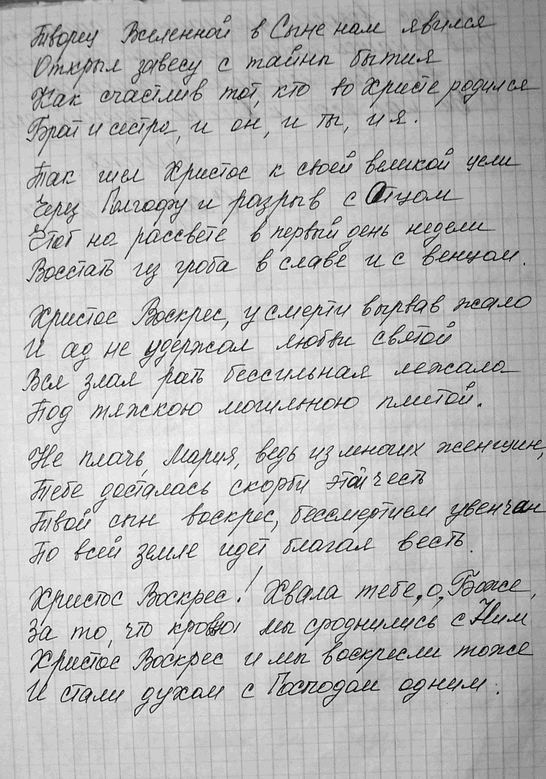 Творец Вселенной в Сыне нам явился
Открыл завесу с тайны бытия
Как счастлив тот, кто во Христе родился
Брат и сестра, и он, и ты, и я.
Так шел Христос к своей великой цели
Через Голгофу и разрыв с Отцом
Чтоб на рассвете в первый день недели
Восстать из гроба в славе и с венцом.
Христос Воскрес, у смерти вырвав жало
И ад не удержал любви святой
Вся злая рать бессильная лежала
Под тяжкою могильною плитой.
Не плачь, Мария, ведь из многих женщин,
Тебе досталась скорби этой честь
Твой сын воскрес, бессмертием увенчан
По всей земле идёт благая весть.
Христос Воскрес! Хвала тебе, о, Боже,
За то, что кровью мы сроднились с Ним
Христос Воскрес и мы воскресли тоже
И стали духом с Господом одним.